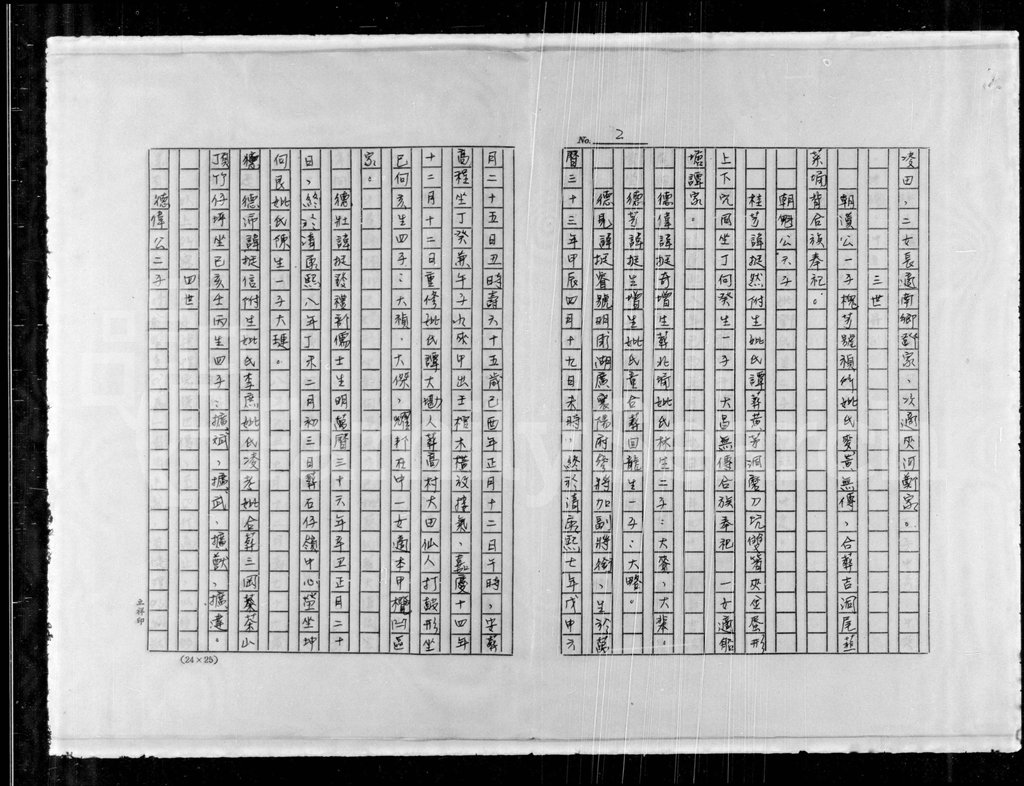 No. 2
凌田,二女長適南鄉鄭家、次適夾河鄭家。
三世
朝漢公一子槐芳號禎所妣氏麥黃無傳,合葬吉洞尾茲
菜塘背合族奉祀。
朝魁公六子
桂芳諱挺然附生妣氏譚葬黃茅洞磨刀坑雙箸夾坐蚕形
上下穴周坐丁向癸生一子 大昌無傳合族奉祀 一女適船
塘譚家。
德偉諱挺奇增生葬北塘妣氏林生二子:大麥,大棐。
德芳諱挺生增生妣氏童合葬回龍生一子:大略。
德見諱挺 號明甫湖廣襄陽府參將加副將銜,生於萬
曆三十三年甲辰四月十九日未時,終於清康熙七年戊申六
月二十五日丑時壽六十五歲己酉年正月十二日午時,安葬
高程坐丁癸兼午子 來甲出壬檀木橫放接氣,嘉慶十四年
十二月十二日重修妣氏譚大勘人葬高村大田仙人打鼓形坐
巳向亥生四子:大禎、大傑,耀軒在中一女適本甲欖凹區
家。
德壯諱挺發禮部儒士生明萬曆三十六年辛丑正月二十
日,終於清康熙八年丁未二月初三日葬石仔嶺中心螢坐坤
向艮妣氏陳生一子大璉。
德沛諱挺信附生妣氏李庶妣氏凌 妣合葬三岡蓁茶山
頂竹仔坪坐巳亥壬丙生四子:擴炯、擴武、擴猷、擴達。
四世
德偉公二子
立祥印
(24×25)